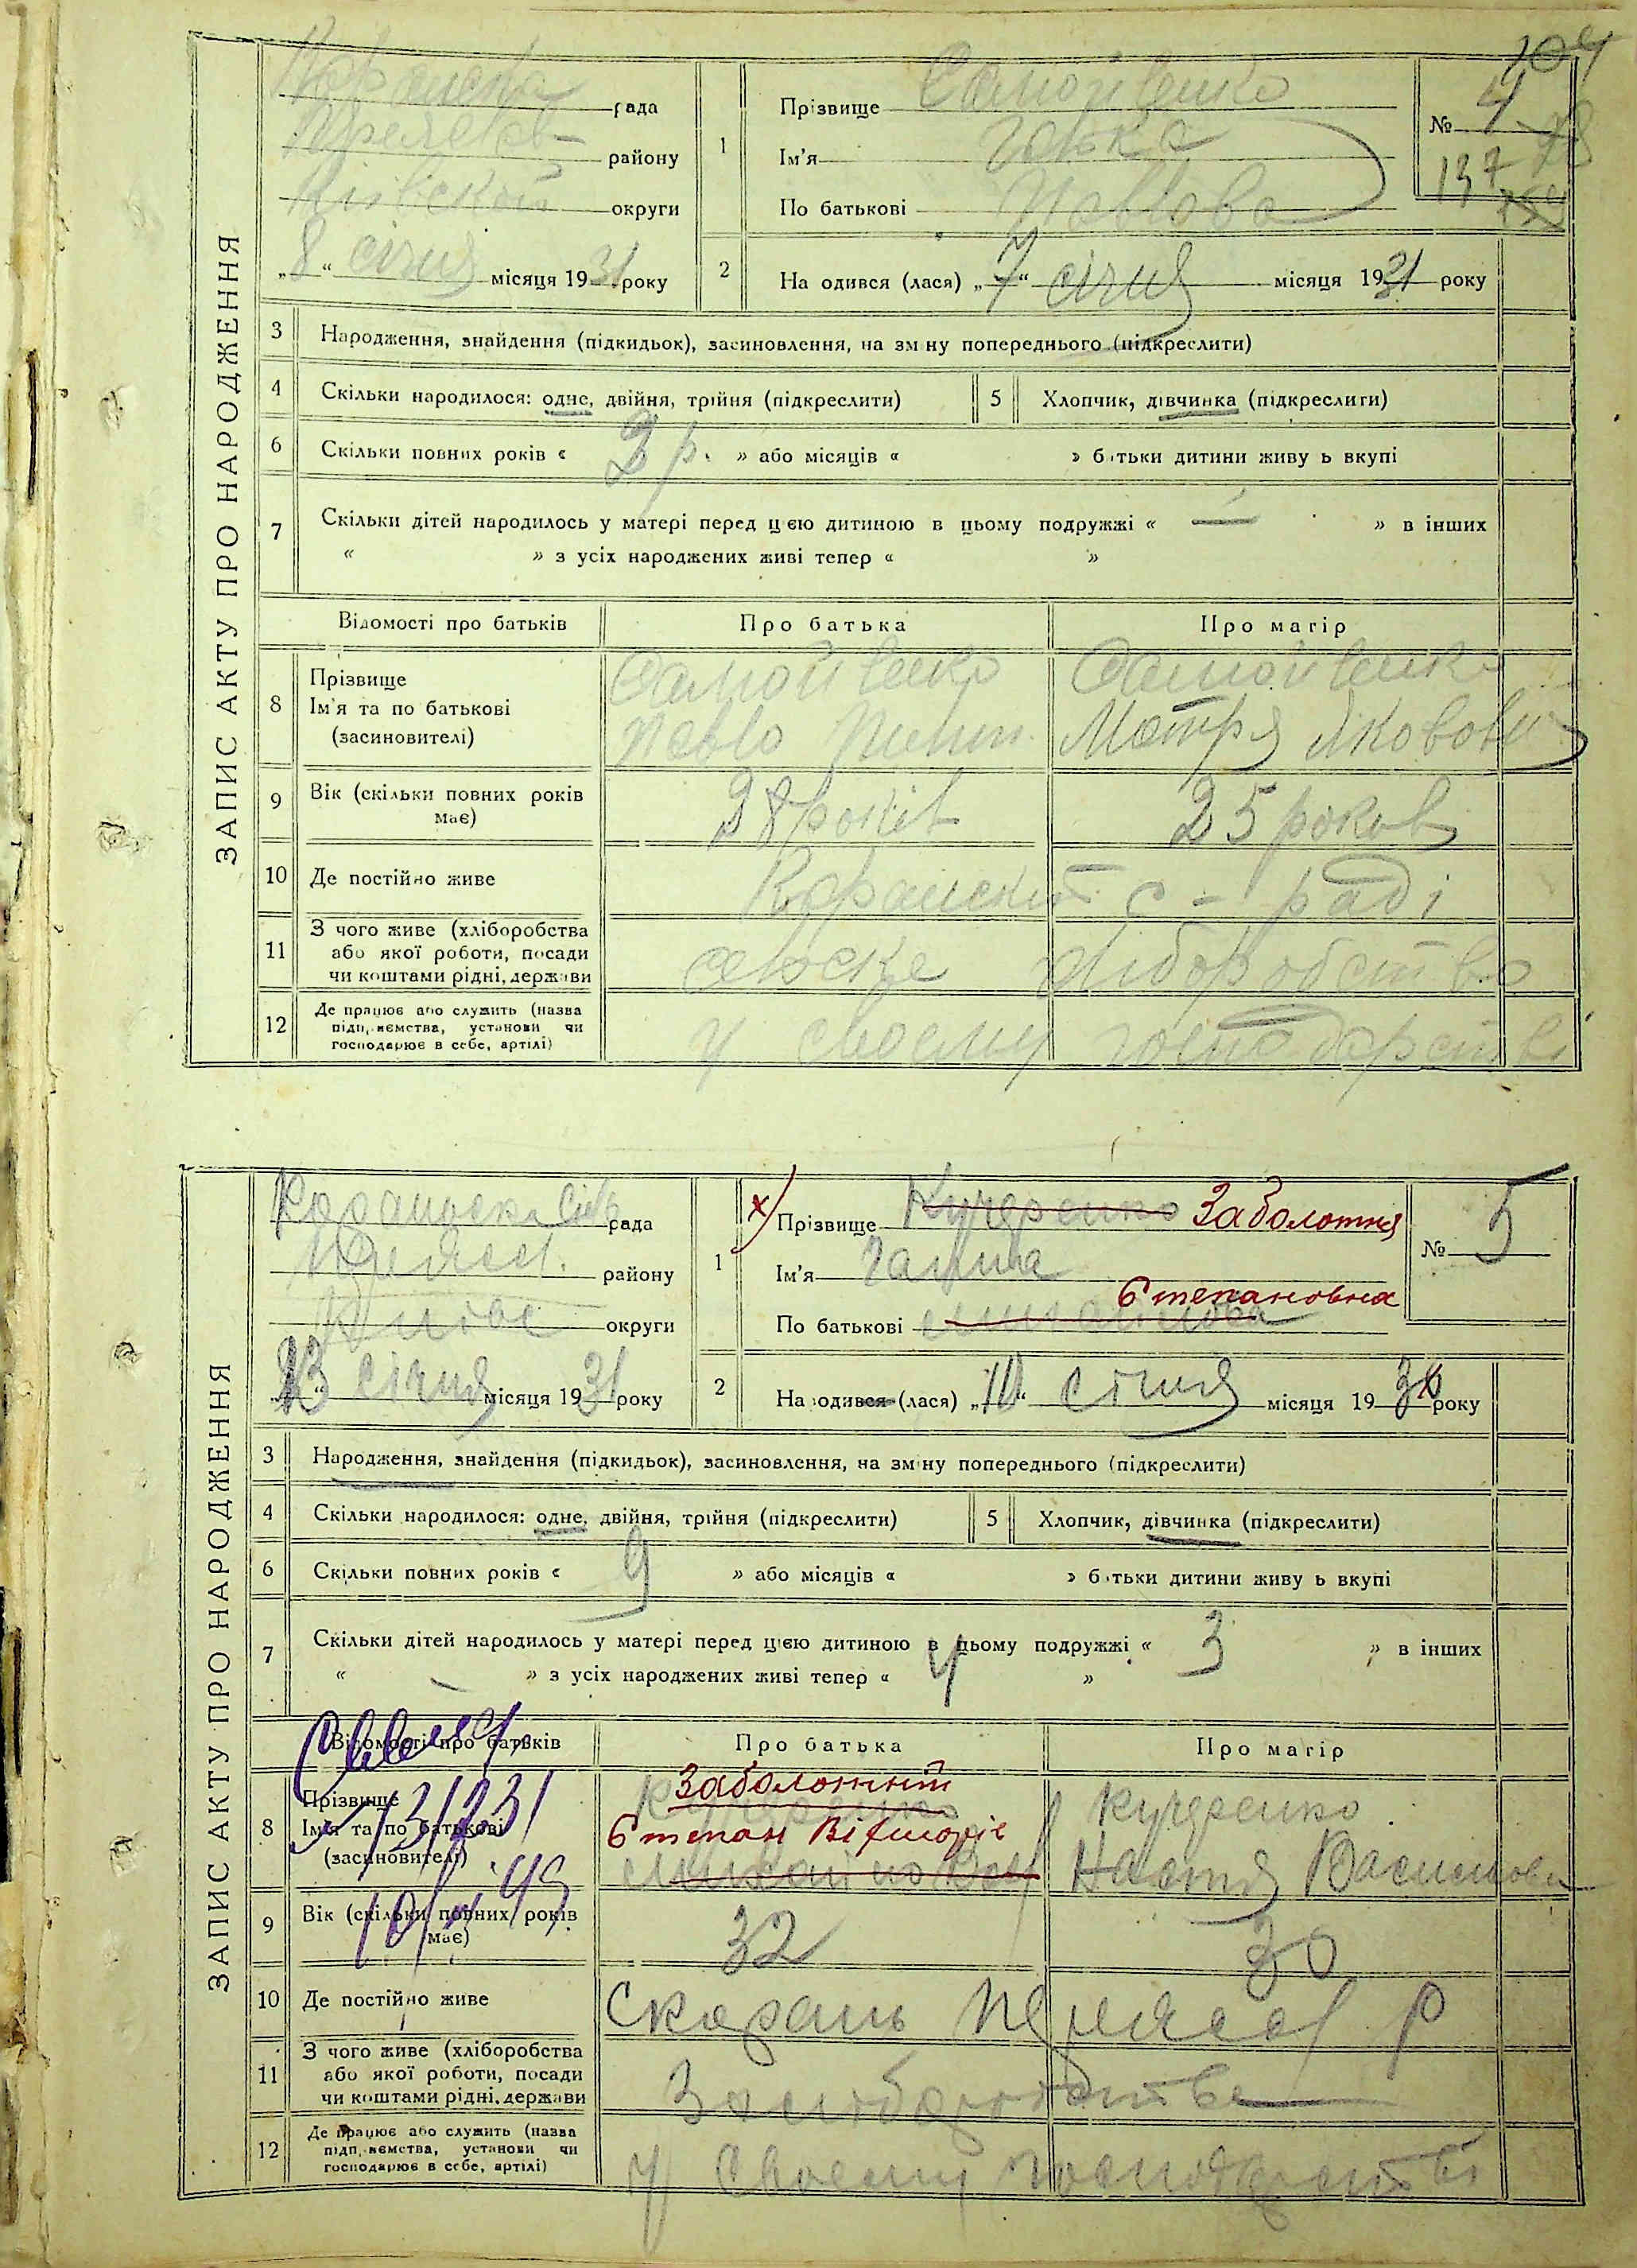 104
ЗАПИС АКТУ ПРО НАРОДЖЕННЯ
рада
району
округи
„8“ січня місяця 1931 року
1
Прізвище Самойленко
Ім'я
По батькові Павлова
№ 4
137
2
На одився (лася) „7“ січня місяця 1931 року
3 Народження, знайдення (підкидьок), засиновлення, на зміну попереднього (підкреслити)
4 Скільки народилося: одне, двійня, трійня (підкреслити)
5 Хлопчик, дівчинка (підкреслити)
6 Скільки повних років « 2 р. » або місяців « » батьки дитини живуть вкупі
7 Скільки дітей народилось у матері перед цією дитиною в цьому подружжі « — » в інших
« » з усіх народжених живі тепер « »
Відомості про батьків Про батька Про матір
8 Прізвище
Ім'я та по батькові
(засиновителі)
Самойленко
Павло
Самойленко
Мотря Якововн
9 Вік (скільки повних років має) 28 років 25 роков
10 Де постійно живе с-раді
11 З чого живе (хліборобства
або якої роботи, посади
чи коштами рідні, держави
хліборобство
12 Де працює або служить (назва
підприємства, установи чи
господарює в себе, артілі)
у своєму господарстві
ЗАПИС АКТУ ПРО НАРОДЖЕННЯ
рада
району
округи
січня місяця 1931 року
1
х) Прізвище Кучеренко Заболотня
Ім'я Галина
По батькові Степановна
№ 5
2
На одився (лася) „10“ січня місяця 19 року
3 Народження, знайдення (підкидьок), засиновлення, на зміну попереднього (підкреслити)
4 Скільки народилося: одне, двійня, трійня (підкреслити)
5 Хлопчик, дівчинка (підкреслити)
6 Скільки повних років « 9 » або місяців « » батьки дитини живуть вкупі
7 Скільки дітей народилось у матері перед цією дитиною в цьому подружжі « 3 » в інших
« — » з усіх народжених живі тепер « 4 »
Відомості про батьків Про батька Про матір
8 Прізвище
Ім'я та по батькові
(засиновителі)
Заболотний
Степан
Кучеренко
Настя Василовн
9 Вік (скільки повних років має) 32 30
10 Де постійно живе С Карань Переясл Р
11 З чого живе (хліборобства
або якої роботи, посади
чи коштами рідні, держави
12 Де працює або служить (назва
підприємства, установи чи
господарює в себе, артілі)
У своєму господарстві